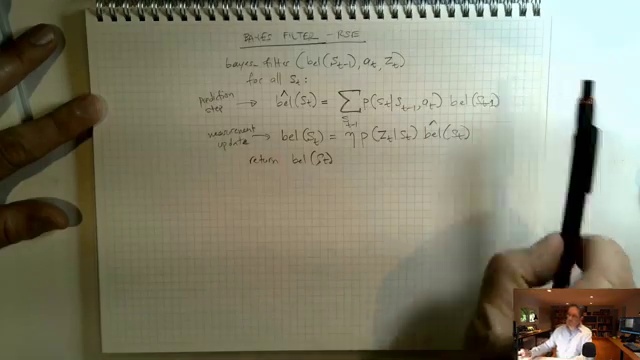 BAYES FILTER - RSE
bayes filter (bel(s_{t-1}), a_t, z_t)
for all s_t:
prediction step → b̂el(s_t) = ∑_{s_{t-1}} p(s_t | s_{t-1}, a_t) bel(s_{t-1})
measurement update → bel(s_t) = η p(z_t | s_t) b̂el(s_t)
return bel(s_t)